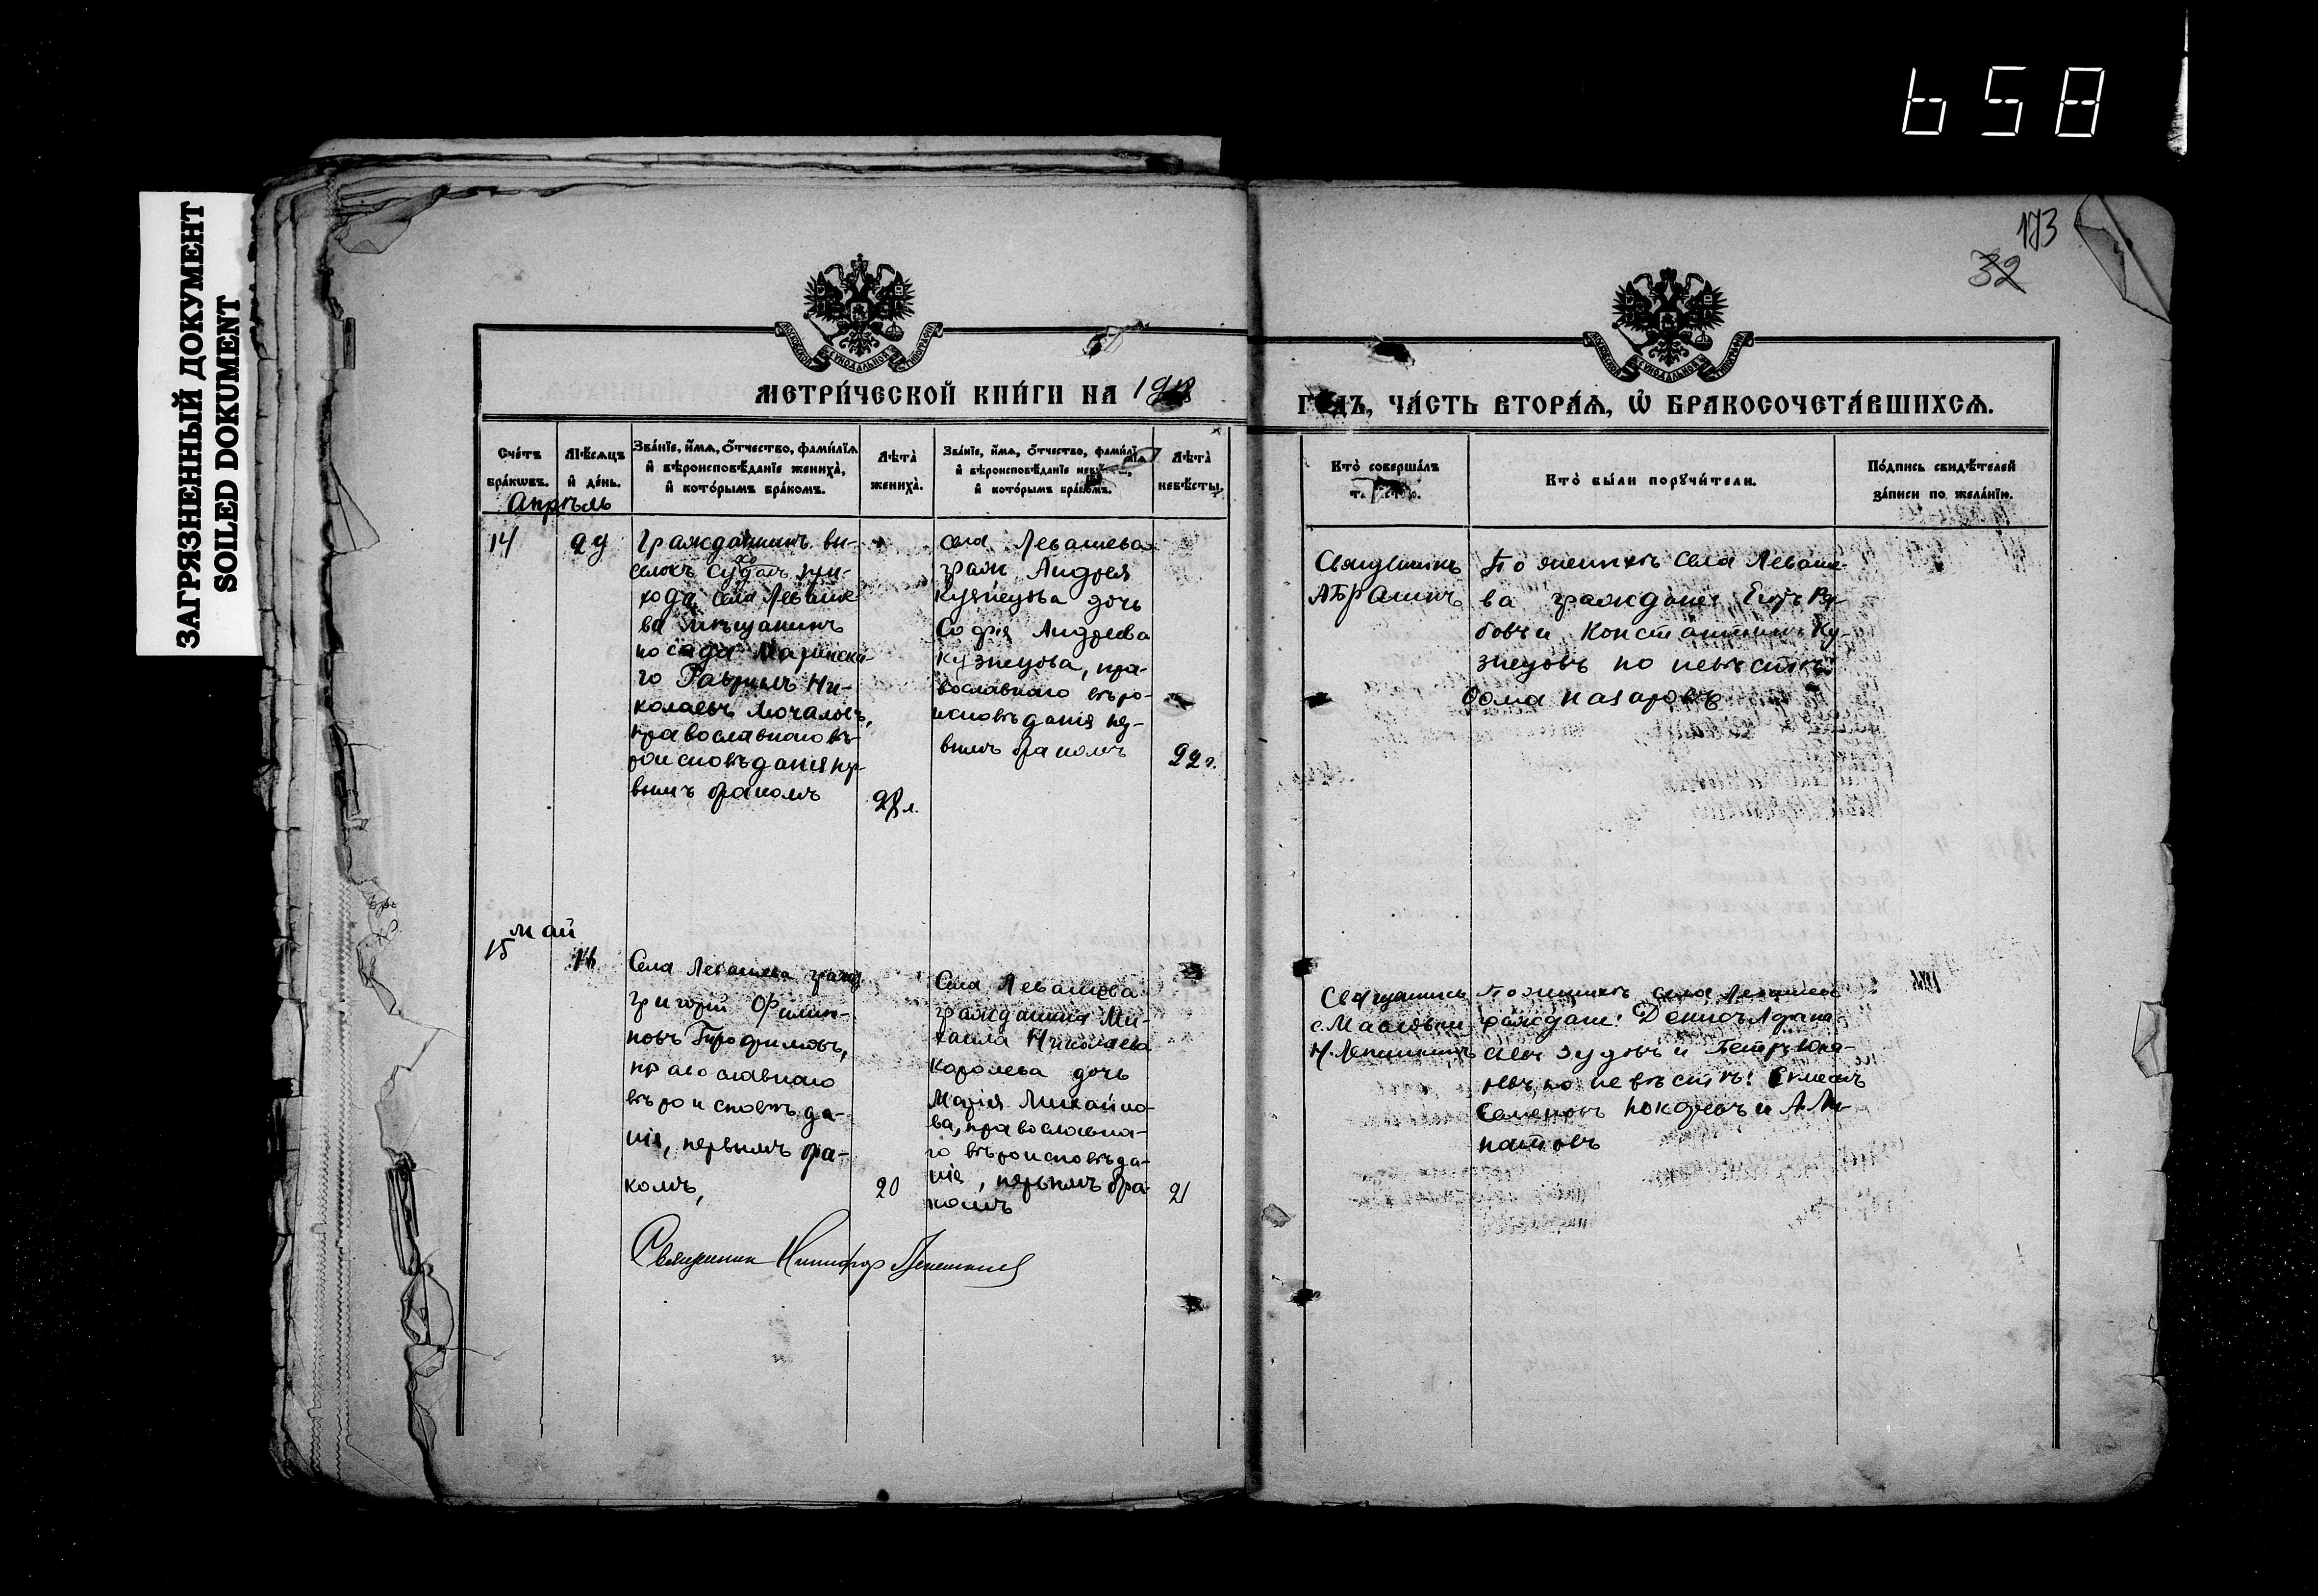 658
ЗАГРЯЗНЕННЫЙ ДОКУМЕНТ
SOILED DOKUMENT
173
32
МОСКОВСКОЙ СѴНОДАЛЬНОЙ ТИПОГРАФІИ
МОСКОВСКОЙ СѴНОДАЛЬНОЙ ТИПОГРАФІИ
МЕТРИ́ЧЕСКОЙ КНИ́ГИ НА 1918
ГОДЪ, ЧА́СТЬ ВТОРА́Ѧ, Ѡ БРАКОСОЧЕТА́ВШИХСѦ.
Сче́тъ бра́кѡвъ.
Мѣ́сѧцъ и де́нь.
Зва́нїе, и́мѧ, о́тчество, фами́лїѧ и вѣроисповѣ́данїе жениха̀, и кото́рымъ бра́комъ.
Лѣ́та жениха̀.
Зва́нїе, и́мѧ, о́тчество, фами́лїѧ и вѣроисповѣ́данїе невѣ́сты, и кото́рымъ бра́комъ.
Лѣ́та невѣ́сты.
Кто̀ соверша́лъ таинство.
Кто̀ бы́ли порꙋчи́тели.
По́дпись свидѣ́телей за́писи по жела́нїю.
Апрѣль
14
29
Гражданинъ вы-
при-
хода села Леваше
ва мѣщанинъ
посада Маринска-
го Гавріилъ Ни-
колаевъ Мочаловъ,
православнаго вѣ-
роисповѣданія пер-
вымъ бракомъ
28 л.
села Левашева
граж. Андрея
Кузнецова дочь
Софія Андреева
Кузнецова, пра-
вославнаго вѣро-
исповѣданія пер-
вымъ бракомъ
22 г.
Священникъ
Абрамовъ
По женихѣ села Леваше-
ва граждане: Егоръ
и Константинъ Ку-
знецовъ по невѣстѣ:
Ѳома Назаровъ
май
15
Села Левашева гражд.
Григорій Филип-
повъ
православнаго
вѣроисповѣда-
нія, первымъ бра-
комъ,
20
Села Левашева
гражданина Ми-
хаила Николаева
Королева дочь
Марія Михайло-
ва, православна-
го вѣроисповѣда-
нія, первымъ бра
комъ
21
Священникъ
с.
Н. Лепешкинъ
По женихѣ села Левашева
граждане: Денисъ
Зудовъ и Петръ
по невѣстѣ:
Семеновъ и
Священникъ Никифор Лепешкинъ